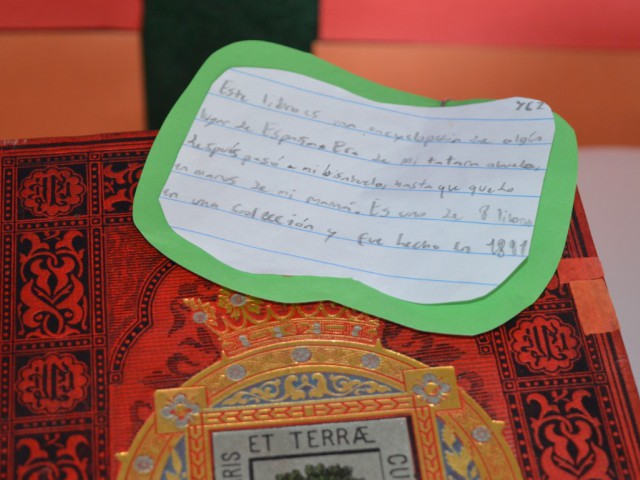 YEZ
Este libro es una enciclopedia de algún
lugar de España. Era de mi tatara abuelo,
después pasó a mi bisabuelo, hasta que quedo
en manos de mi mamá. Es uno de 8 libros
en una colección y fue hecho en 1891
RIS ET TERRÆ CU